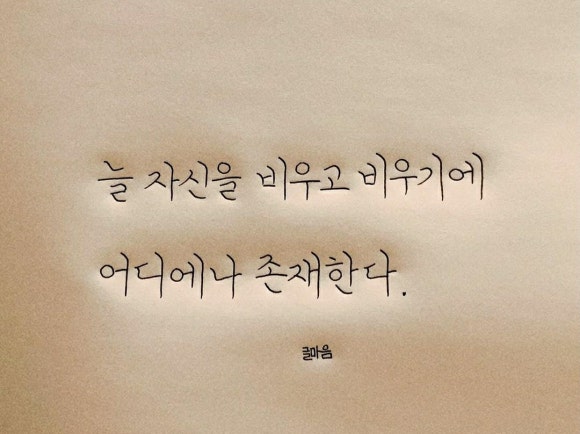 늘 자신을 비우고 비우기에
어디에나 존재한다.
글마음